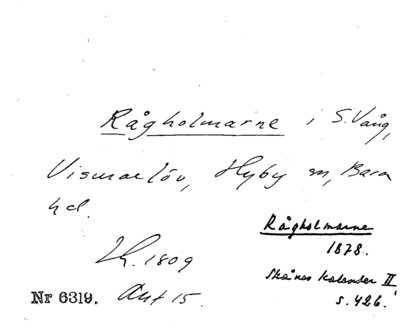 Rågholmarne i S. Vång,
Vismarlöv, Hyby sn, Bara
hd.
Lh. 1809
Akt 15.
Rågholmarne
1878.
Skånes Kalender II
s. 426.
Nr 6319.